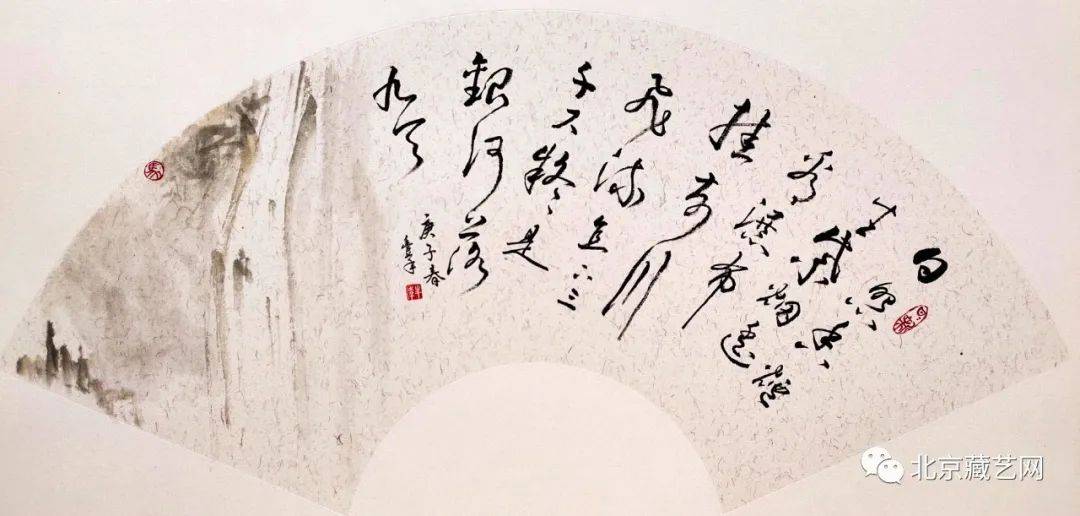 日照香炉
生紫烟遥
看瀑布
挂前川
飞流直下三
千尺疑是
銀河落
九天
庚子春
北京藏艺网